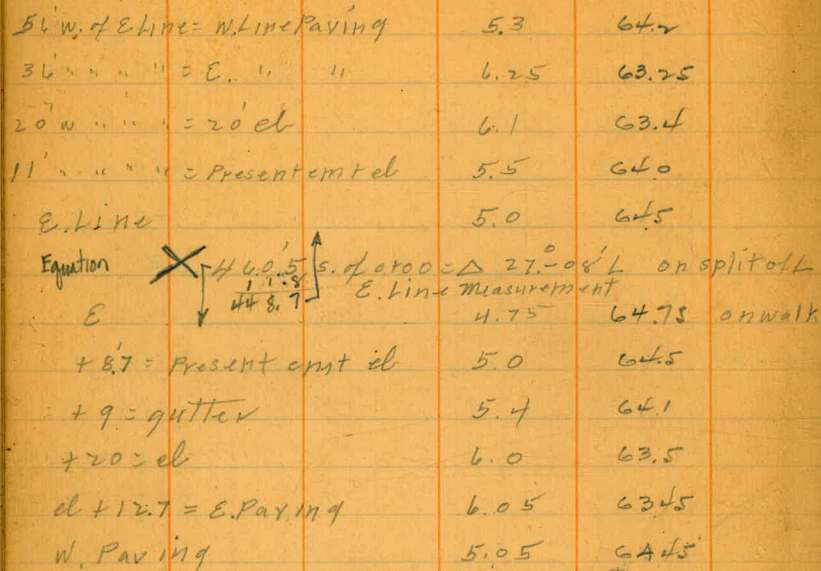 51' W. of E Line = W. Line Paving 5.3 64.2
36' " " " " = E. " " 6.25 63.25
20' W " " " = 20' el 6.1 63.4
11' " " " " = Present emt el 5.5 64.0
E. Line 5.0 64.5
Equation 460.5' S. of 0+00 = Δ 27°-08' L on split of L
11.8
448.7 E. Line Measurement
E 4.75 64.75 on walk
+8.7' = Present emt el 5.0 64.5
+9 = gutter 5.4 64.1
+20 = el 6.0 63.5
el +12.7 = E. Paving 6.05 63.45
W. Paving 5.05 64.45